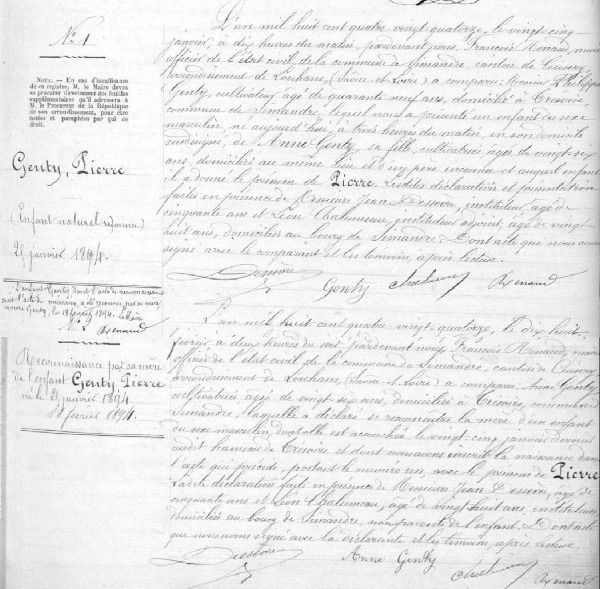 N° 1
NOTA. — En cas d'insuffisance
de ce registre, M. le Maire devra
se procurer directement des feuilles
supplémentaires qu'il adressera à
M. le Procureur de la République
de son arrondissement, pour être
cotées et paraphées par qui de
droit.
Genty, Pierre
(Enfant naturel reconnu)
25 janvier 1894.
L'an mil huit cent quatre vingt-quatorze, le vingt-cinq
janvier, à dix heures du matin, pardevant nous, François Renaud, maire
officier de l'état civil de la commune de Simandre, canton de Cuisery,
arrondissement de Louhans, (Saône et Loire) a comparu: Monsieur Philippe
Genty, cultivateur âgé de quarante neuf ans, domicilié à
commune de Simandre, lequel nous a présenté un enfant du sexe
masculin, né aujourd'hui, à trois heures du matin, en son domicile
susdésigné, de Anne Genty, sa fille, cultivatrice âgée de vingt-six
ans, domiciliée au même lieu et d'un père inconnu et auquel enfant
il a donné le prénom de Pierre. Lesdites déclaration et présentation
faites en présence de Messieurs Jean Desson, instituteur, âgé de
cinquante ans et Léon Chalumeau, instituteur adjoint, âgé de vingt-
huit ans, domiciliés au bourg de Simandre. Dont acte que nous avons
signé avec le comparant et les témoins, après lecture.
Genty Renaud
L'enfant Genty dont l'acte de naissance
a été reconnu par sa mère
Anne Genty, le 18 février 1894. Le Maire
Renaud
N° 2
Reconnaissance par sa mère
de l'enfant Genty Pierre
né le 25 janvier 1894
18 février 1894.
L'an mil huit cent quatre vingt-quatorze, le dix huit
février à deux heures du soir, pardevant nous, François Renaud, maire
officier de l'état civil de la commune de Simandre, canton de Cuisery
arrondissement de Louhans, (Saône et Loire) a comparu: Anne Genty
cultivatrice âgée de vingt-six ans, domiciliée à commune
Simandre, laquelle a déclaré se reconnaître la mère d'un enfant
du sexe masculin, dont elle est accouchée, le vingt-cinq janvier dernier
audit hameau de et dont nous avons inscrit la naissance dans
l'acte qui précède, portant le numéro un, avec le prénom de Pierre
Ladite déclaration faite en présence de Messieurs Jean Desson, âgé de
cinquante ans et Léon Chalumeau, âgé de vingt huit ans, instituteurs
domiciliés au bourg de Simandre, non parents de l'enfant. Dont acte
que nous avons signé avec la déclarante et les témoins, après lecture.
Anne Genty Renaud